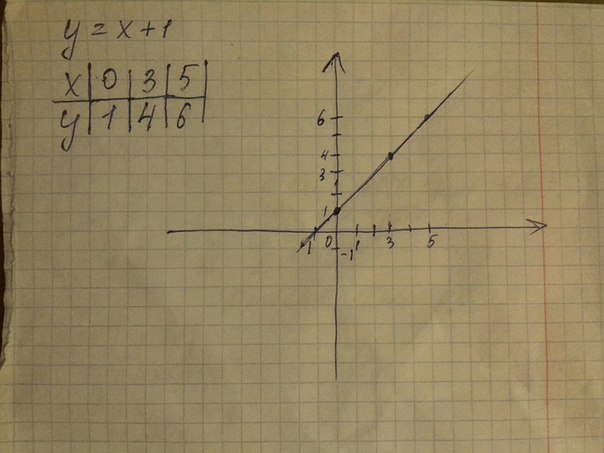 y = x + 1
x | 0 | 3 | 5 |
y | 1 | 4 | 6 |
6
4
3
1
-1 0 1 3 5
-1